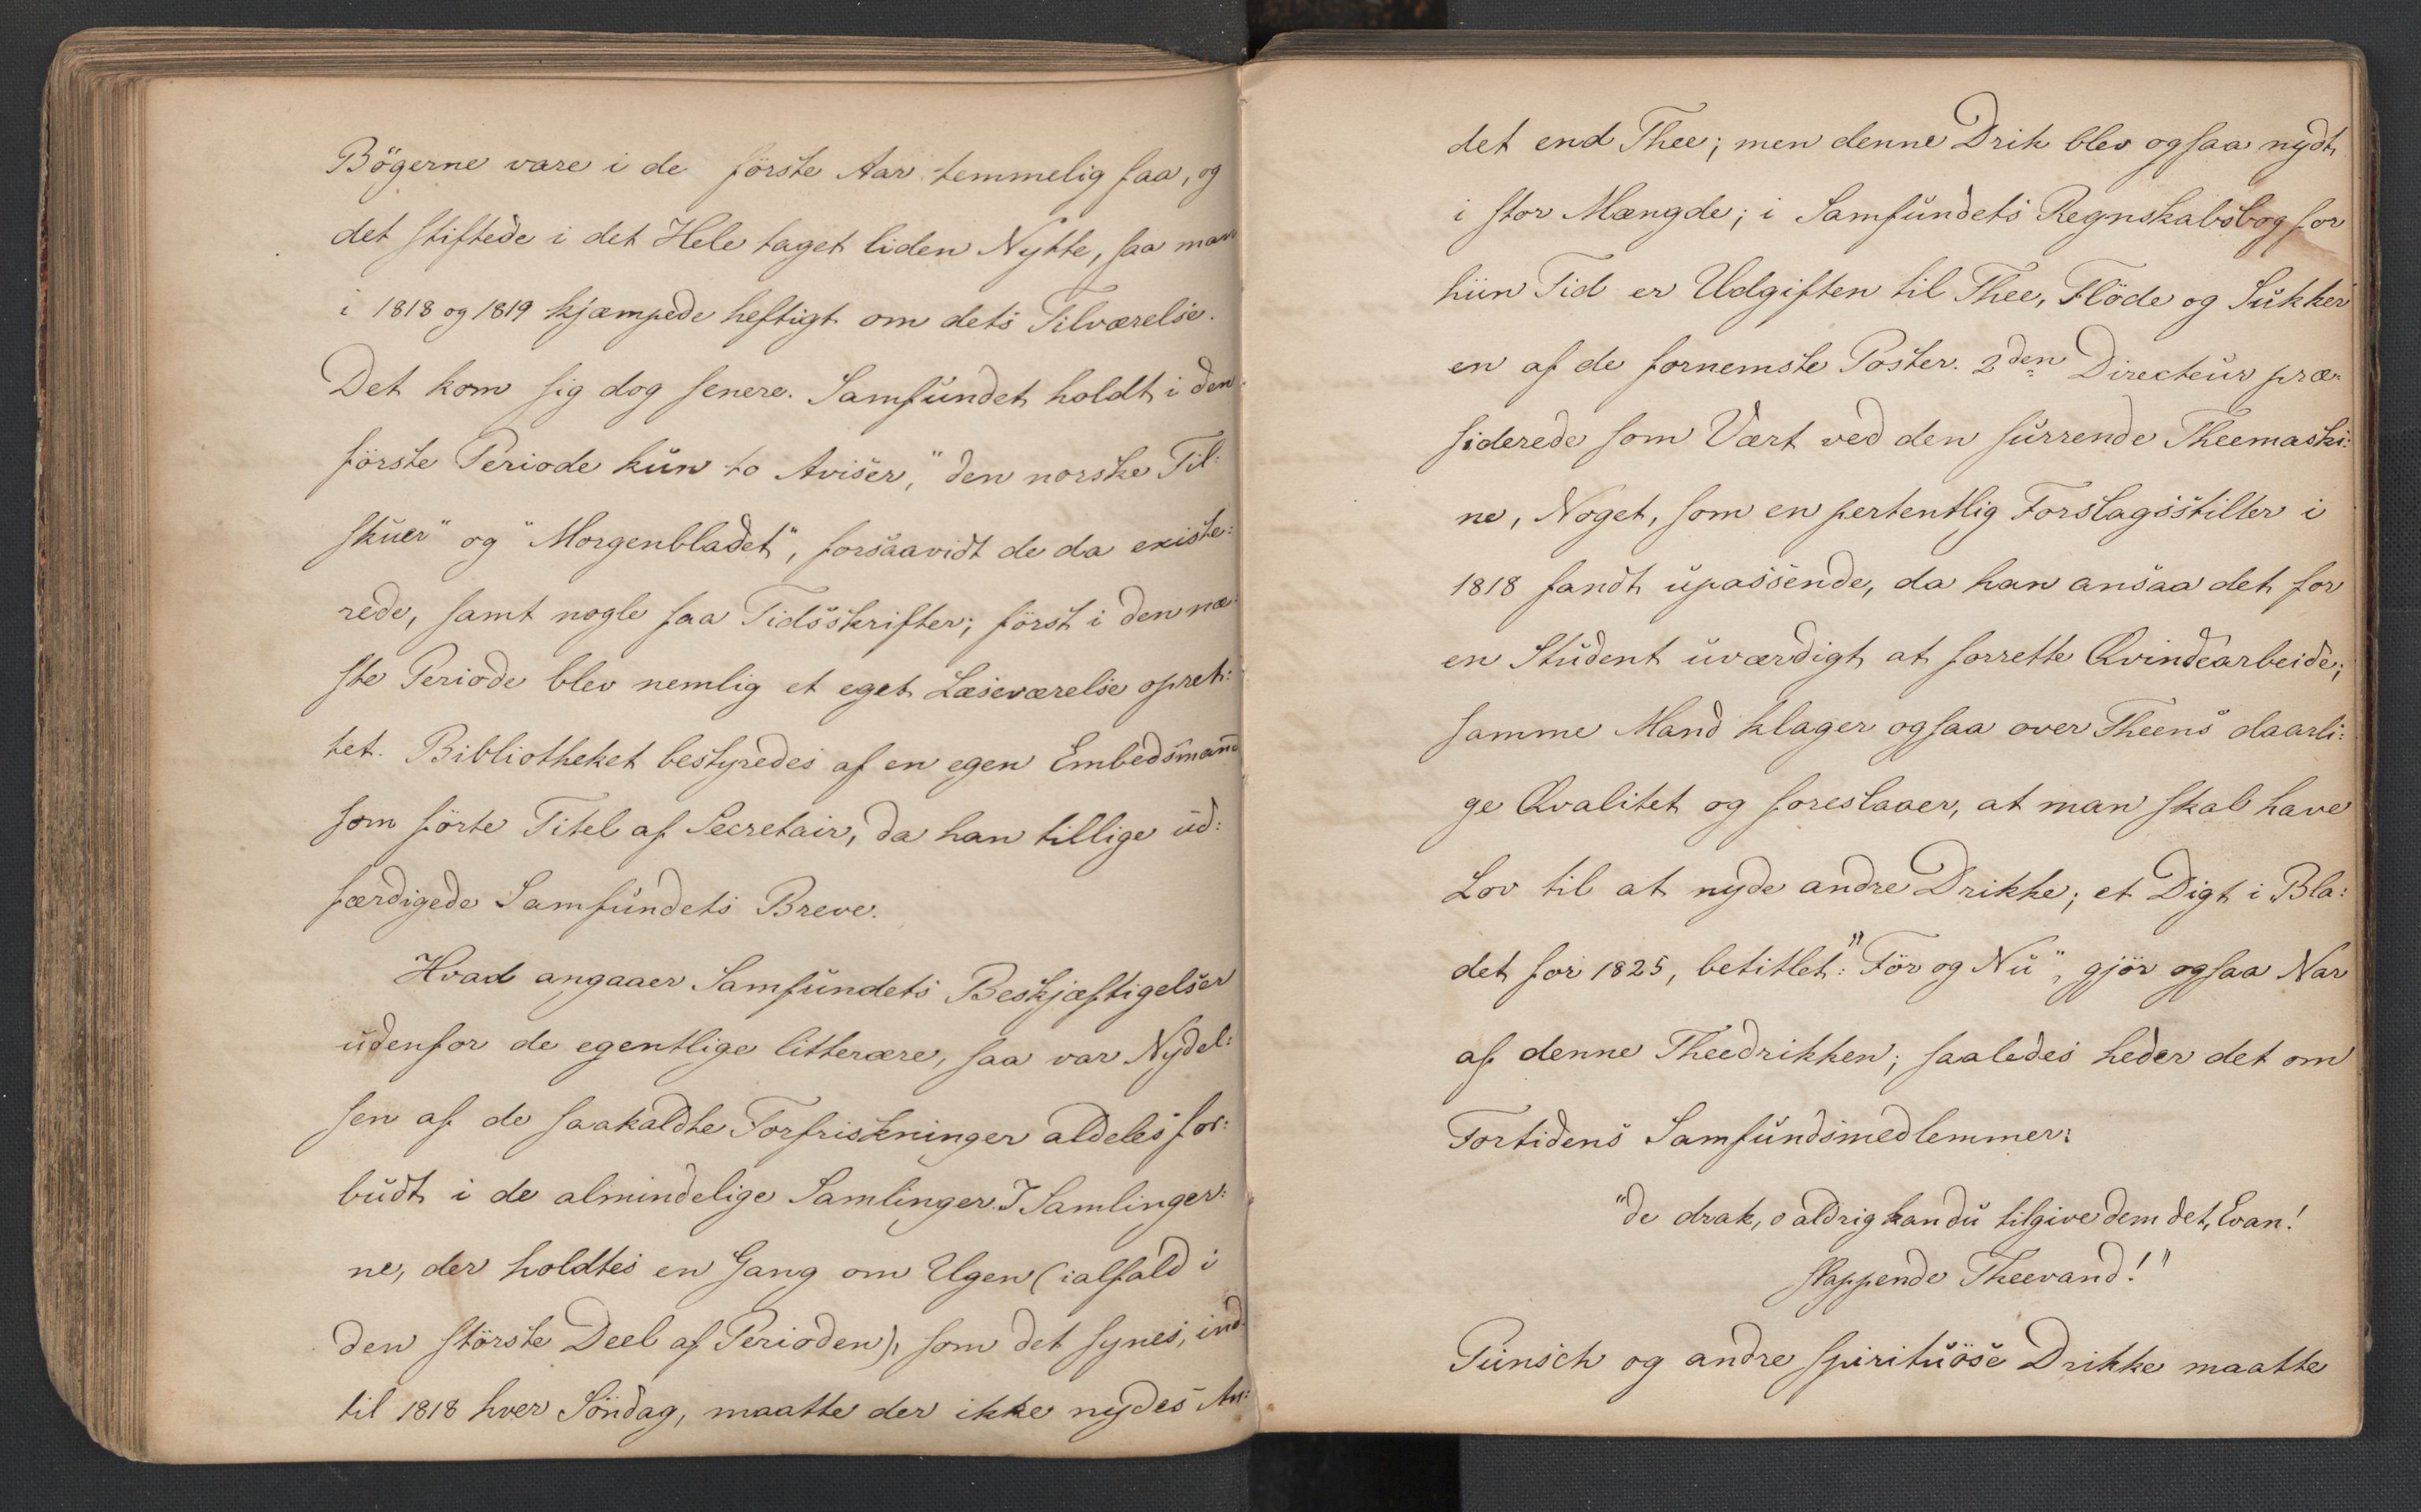 Bögerne vare i de förste Aar temmelig faa, og
det stiftede i det Hele taget liden Nytte, saa man
i 1818 og 1819 kjæmpede heftigt om dets Tilværelse.
Det kom sig dog senere. Samfundet holdt i den
förste Periode kun to Aviser, "den norske Til:
skuer" og "Morgenbladet", forsaavidt de da existe:
rede, samt nogle faa Tidsskrifter; först i den næ:
ste Periode blev nemlig et eget Læseværelse opret:
tet. Bibliotheket bestyredes af en egen Embedsmand
som förte Titel af Secretair, da han tillige ud:
færdigede Samfundets Breve.
Hvad angaaer Samfundets Beskjæftigelser
udenfor de egentlige litterære, saa var Nydel:
sen af de saakaldte Forfriskninger aldeles for:
budt i de almindelige Samlinger. I Samlinger:
ne, der holdtes en Gang om Ugen (ialfald i
den störste Deel af Perioden), som det synes, ind
til 1818 hver Söndag, maatte der ikke nydes An:
det end Thee; men denne Drik blev ogsaa nydt
i stor Mængde; i Samfundets Regnskabsbog for
hiin Tid er Udgiften til Thee, Flöde og Sukker
en af de fornemste Poster. 2den Directeur præ:
siderede som Vært ved den surrende Theemaski:
ne, Noget, som en pertentlig Forslagsstiller i
1818 fandt upassende, da han ansaa det for
en Student uværdigt at forrette Qvindearbeide;
samme Mand klager ogsaa over Theens daarli:
ge Qvalitet og foreslaaer, at man skal have
Lov til at nyde andre Drikke; et Digt i Bla:
det for 1825, betitlet: "För og Nu", gjör ogsaa Nar
af denne Theedrikken; saaledes heder det om
Fortidens Samfundsmedlemmer:
"de drak, o aldrig kan du tilgive dem det, Evan!
slappende Theevand!"
Punsch og andre spirituöse Drikke maatte